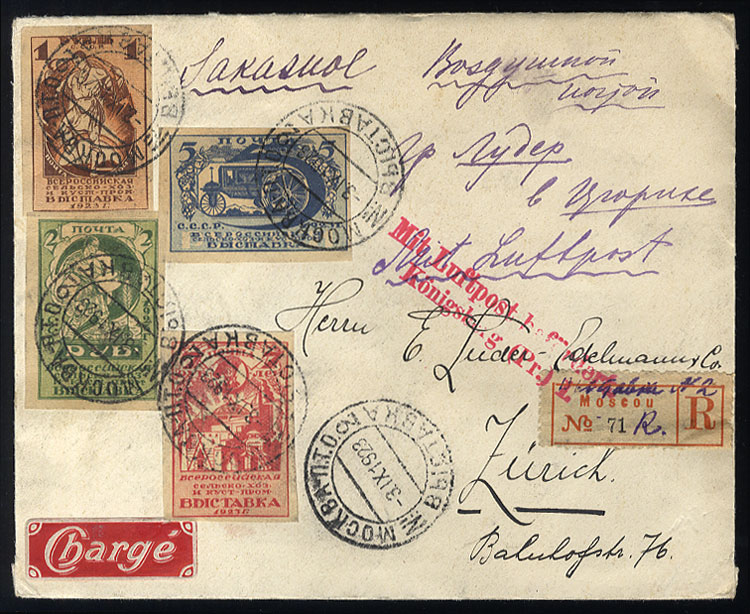 Заказное Воздушной
почтой
гр Лудер
в Цюрихе
Mit Luftpost
Mit Luftpost befördert
Königsberg (Pr.)
Herrn E. Luder-Edelmann & Co.
Zürich.
Bahnhofstr. 76.
1 1
ВСЕРОССИЙСКАЯ
СЕЛЬСКО-ХОЗ
И КУСТ-ПРОМ
ВЫСТАВКА
1923 г.
5 ПОЧТА 5
С.С.С.Р.
ВСЕРОССИЙСКАЯ
ВЫСТАВКА
ПОЧТА
2 2
РУБ
ВСЕРОССИЙСКАЯ
ВЫСТАВКА
ВСЕРОССИЙСКАЯ
СЕЛЬСКО-ХОЗ
И КУСТ-ПРОМ
ВЫСТАВКА
1923 г.
МОСКВА ВЫСТАВКА
-3 IX 1923
№ 2
Moscou
№ 71 R.
R
Chargé